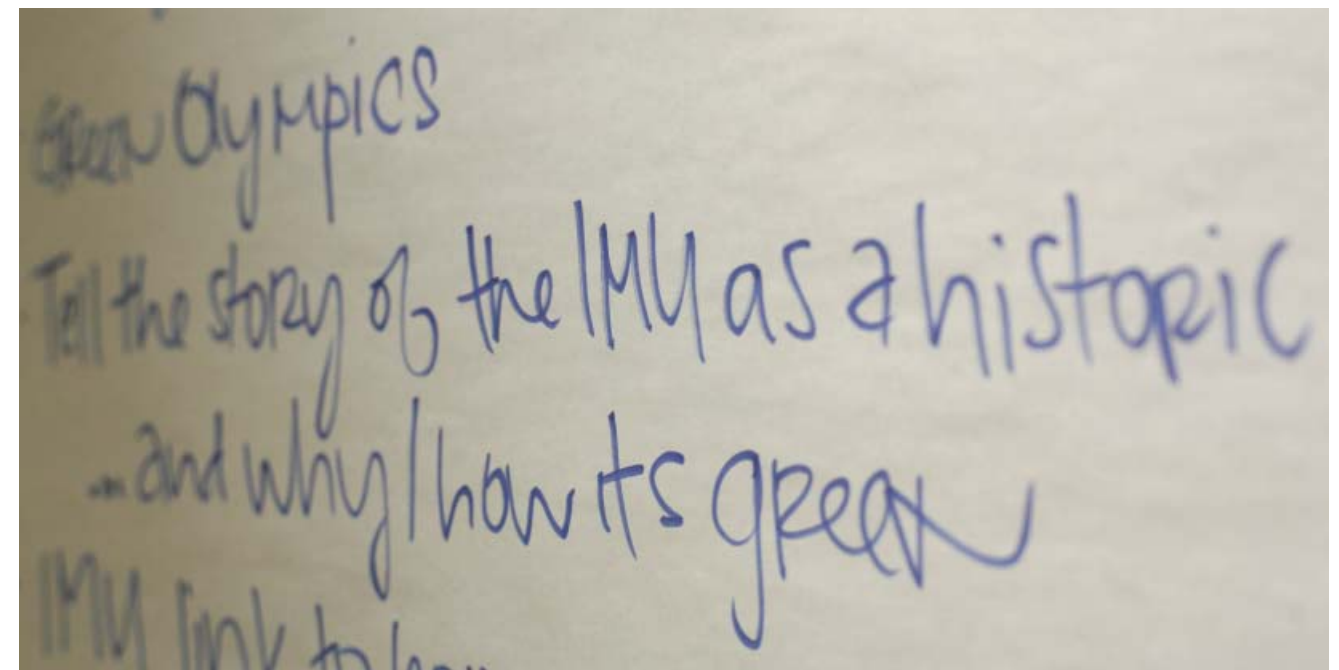 Green Olympics
Tell the story of the IMU as a historic
...and why/how its green
IMU link to